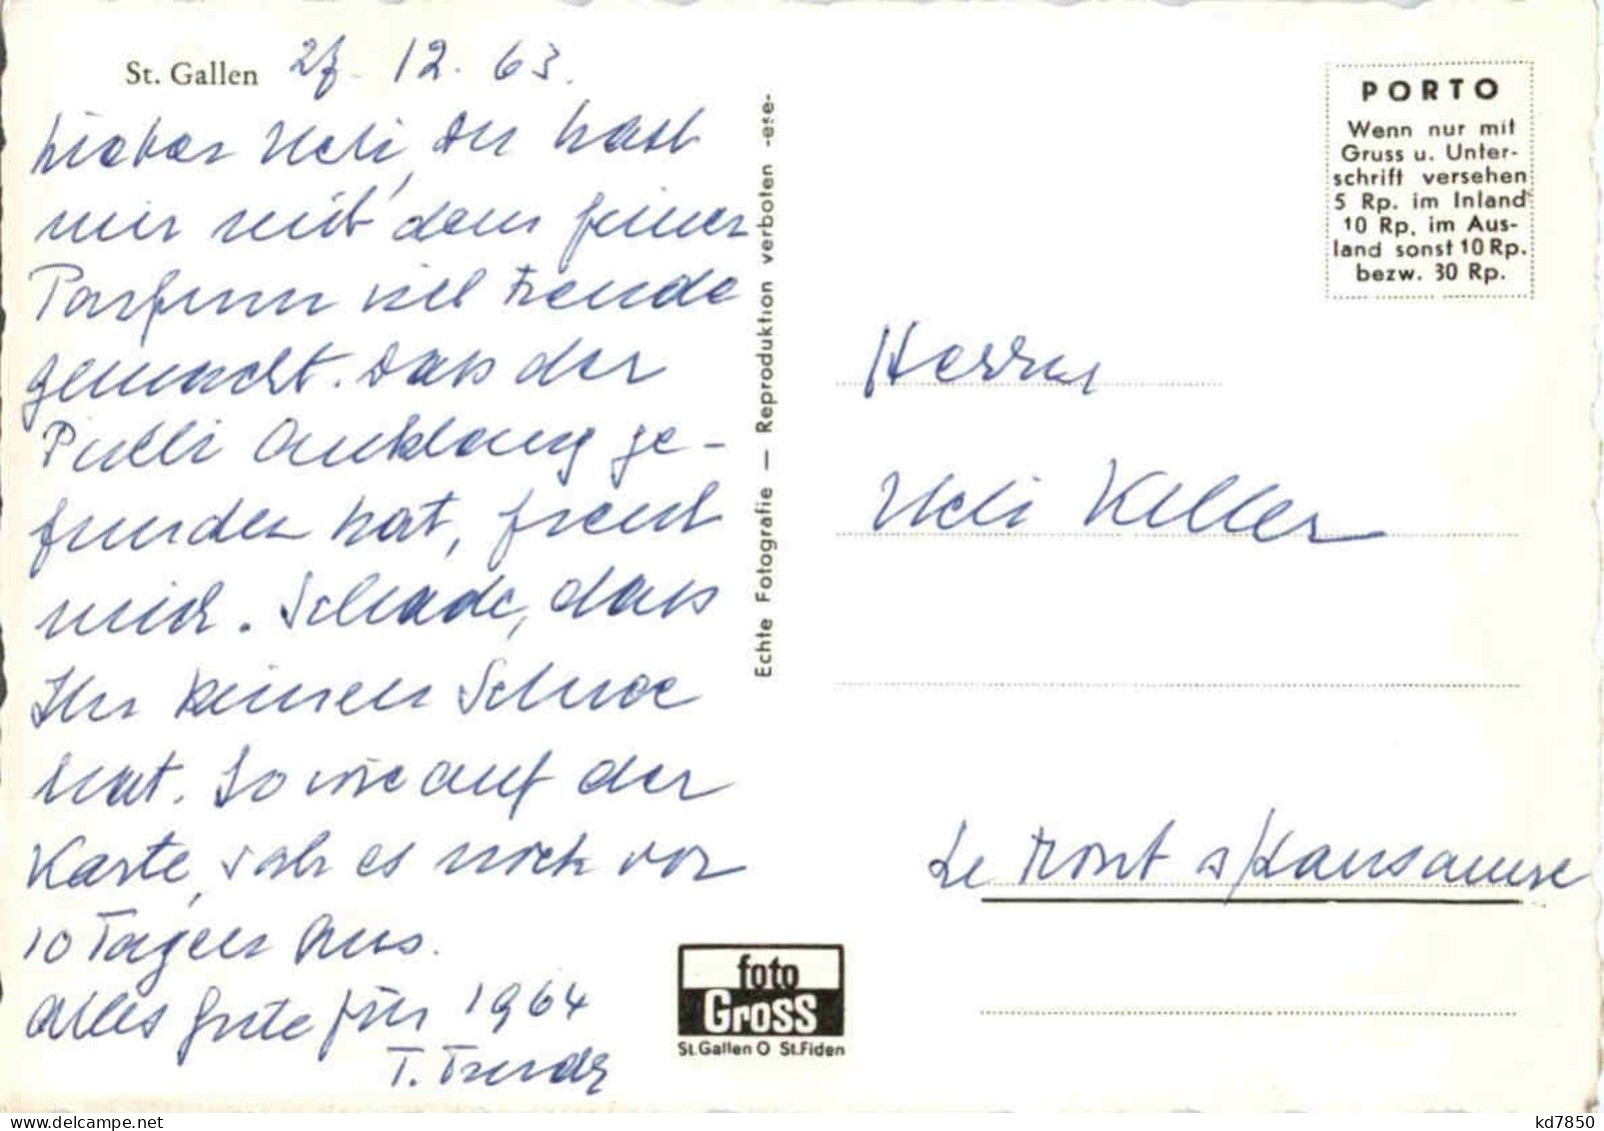 St. Gallen 27. 12. 63.
Lieber Ueli, Du hast
mir mit dem feinen
Parfum viel Freude
gemacht. Dass der
Pulli Anklang ge-
funden hat, freut
mich. Schade, dass
Ihr keinen Schnee
hat. So wie auf der
Karte, sah es noch vor
10 Tagen aus.
Alles gute für 1964
T. Trudy
Echte Fotografie — Reproduktion verboten -ese-
PORTO
Wenn nur mit
Gruss u. Unter-
schrift versehen
5 Rp. im Inland
10 Rp. im Aus-
land sonst 10 Rp.
bezw. 30 Rp.
Herrn
Ueli Keller
Le Mont s/Lausanne
foto
Gross
St.Gallen O St.Fiden
kd7850